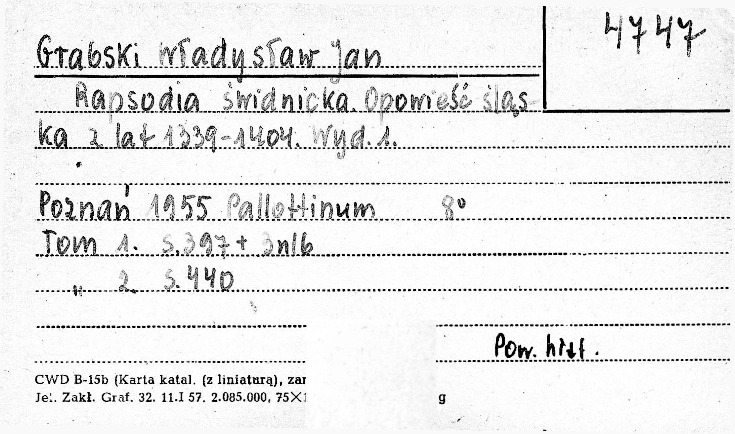 4747
Grabski Władysław Jan
Rapsodia świdnicka. Opowieść śląs-
ka z lat 1339-1404. Wyd. 1.
Poznań 1955 Pallottinum 8°
Tom 1. s. 397 + 3nlb
„ 2 s. 440
Pow. hist.
CWD B-15b (Karta katal. (z liniaturą), zar
Jel. Zakł. Graf. 32. 11.I 57. 2.085.000, 75×1 g